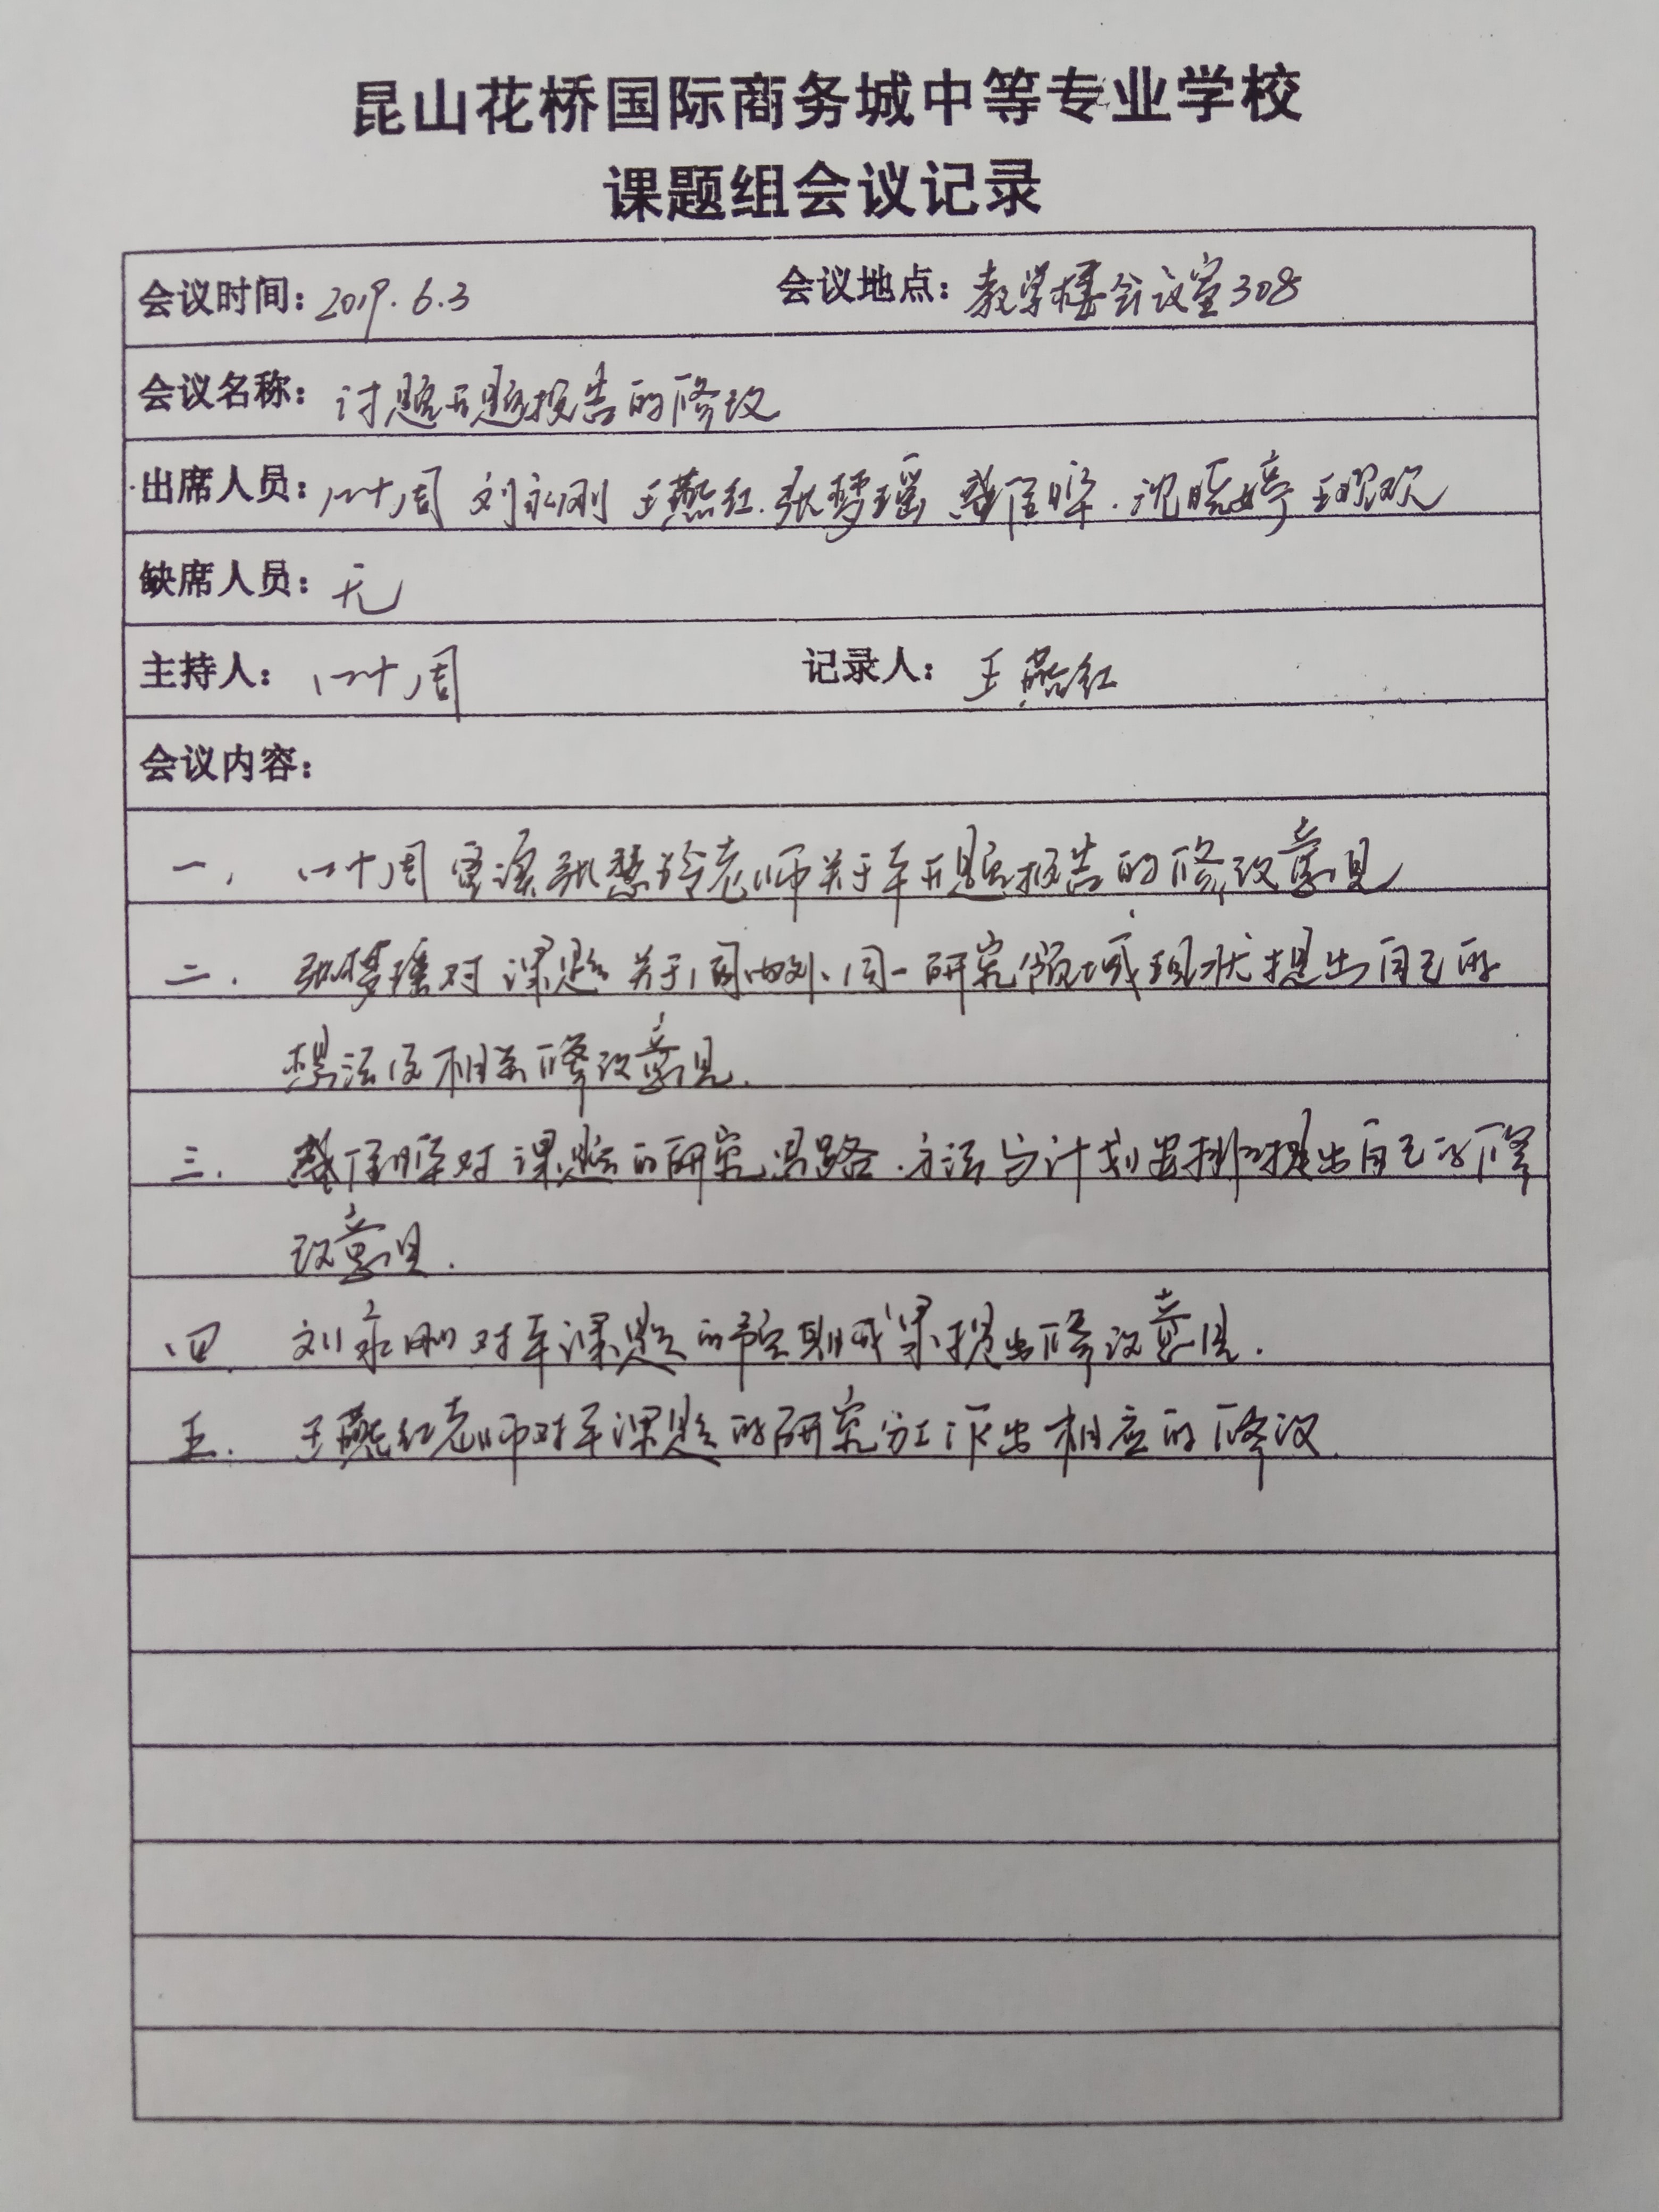 昆山花桥国际商务城中等专业学校
课题组会议记录
会议时间：2019.6.3 会议地点：教学楼会议室308
会议名称：讨题开题报告的修改
出席人员：叶周 刘永刚 王燕红.张梦瑶 晔.沈晓婷 王欢
缺席人员：无
主持人：叶周 记录人：王燕红
会议内容：
一、叶周宣读张慧玲老师关于本开题报告的修改意见
二.张梦瑶对课题关于国内外同一研究领域现状提出自己的
想法及相关修改意见.
三.对课题的研究思路.方法与计划安排提出自己的修
改意见.
四 刘永刚对本课题的预期成果提出修改意见.
五.王燕红老师对本课题的研究分工作出相应的修改.